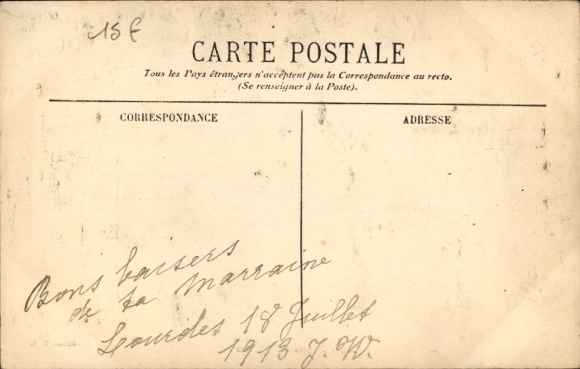 15 €
CARTE POSTALE
Tous les Pays étrangers n'acceptent pas la Correspondance au recto.
(Se renseigner à la Poste).
CORRESPONDANCE
ADRESSE
Bons baisers
de ta Marraine
Lourdes 18 Juillet
1913 J. W.